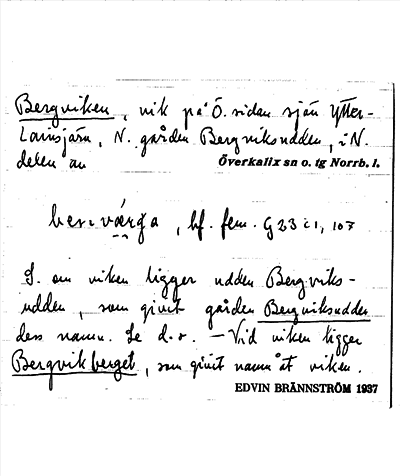 Bergviken, vik på Ö. sidan sjön Ytter-
Lainsjärv, N. gården Bergviksudden, i N.
delen av Överkalix sn o. tg Norrb. l.
bf. fem. G 23 c 1, 107
S. om viken ligger udden Bergviks-
udden, som givit gården Bergviksudden
dess namn. Se d. o. — Vid viken ligger
Bergvikberget, som givit namn åt viken.
EDVIN BRÄNNSTRÖM 1937